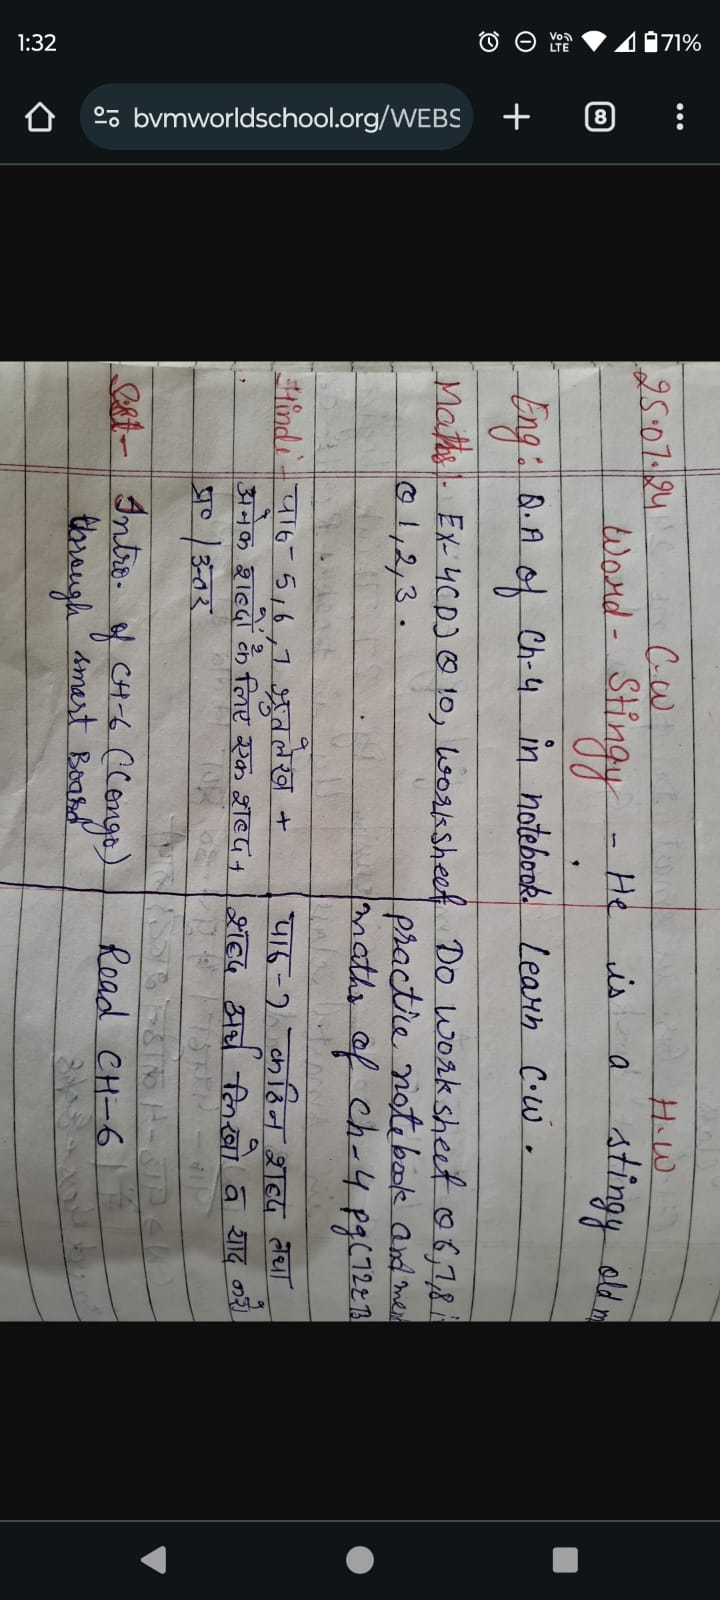 1:32
Vo)) LTE
71%
bvmworldschool.org/WEBS
8
25.07.24 C.W H.W
Word - Stingy - He is a stingy old m
Eng: Q.A of Ch-4 in notebook. Learn C.W.
Maths: Ex-4(D) Q 10, worksheet Do worksheet Q 6,7,8 i
Q 1,2,3. practice notebook and men
maths of ch-4 pg(72
Hindi - पाठ-5,6,7 श्रुतलेख + पाठ-7 कठिन शब्द तथा
अनेक शब्दों के लिए एक शब्द + शब्द अर्थ लिखो व याद करो।
प्र० / उत्तर
S.st - Intro. of CH-6 (Congo) Read CH-6
through smart Board